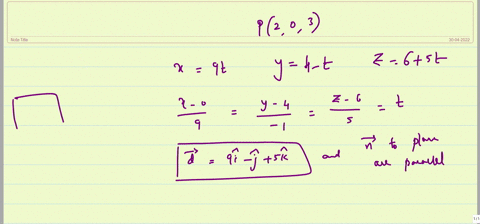 P(2, 0, 3)
Note Title
30-04-2022
x = 9t y = 4-t z = 6+5t
x-0/9 = y-4/-1 = z-6/5 = t
d⃗ = 9î - ĵ + 5k̂ and n⃗ to plane
are parallel
1/1